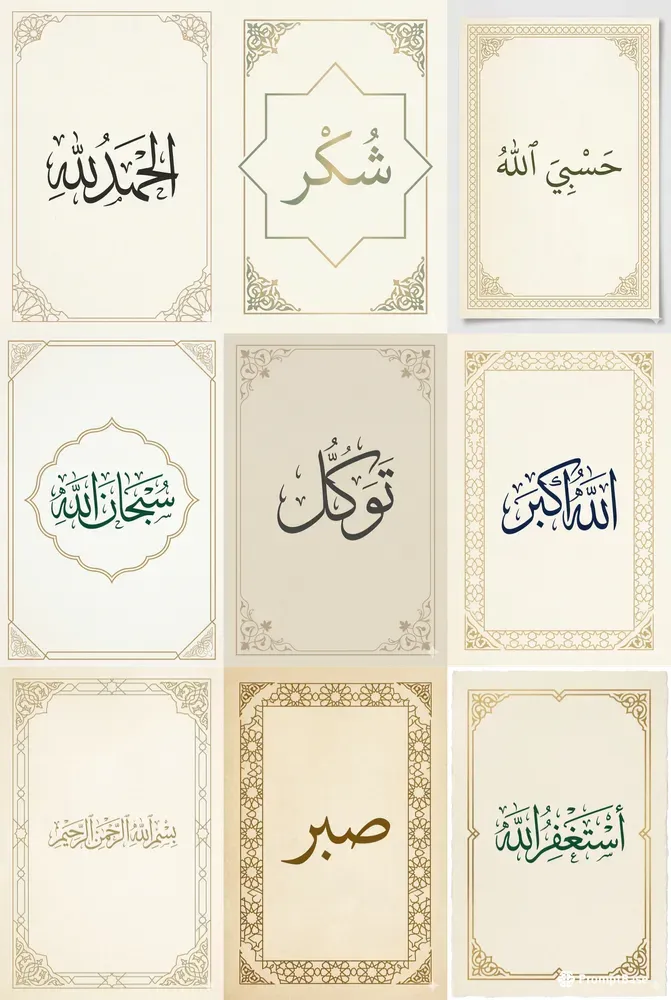 الحمد لله
شُكْر
حَسْبِيَ ٱللهُ
سُبْحَانَ اللَّه
تَوَكُّل
اللهُ أكبر
بِسْمِ اللهِ الرَّحْمٰنِ الرَّحِيْمِ
صبر
أَسْتَغْفِرُ اللَّه
PromptBase